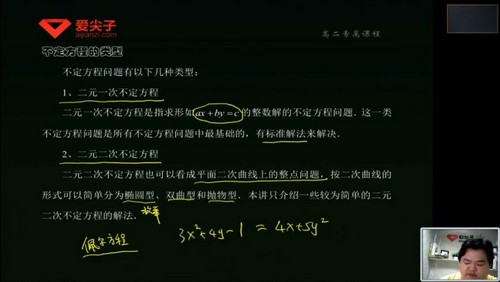 爱尖子
aijianzi.com
高二专属课程
不定方程的类型
不定方程问题有以下几种类型：
1、二元一次不定方程
二元一次不定方程是指求形如ax+by=c的整数解的不定方程问题．这一类
不定方程问题是所有不定方程问题中最基础的，有标准解法来解决．
2、二元二次不定方程
二元二次不定方程也可以看成平面二次曲线上的整点问题．按二次曲线的
形式可以简单分为椭圆型、双曲型和抛物型．本讲只介绍一些较为简单的二元
二次不定方程的解法．
佩尔方程
3x²+4y-1=4x+5y²
爱尖子